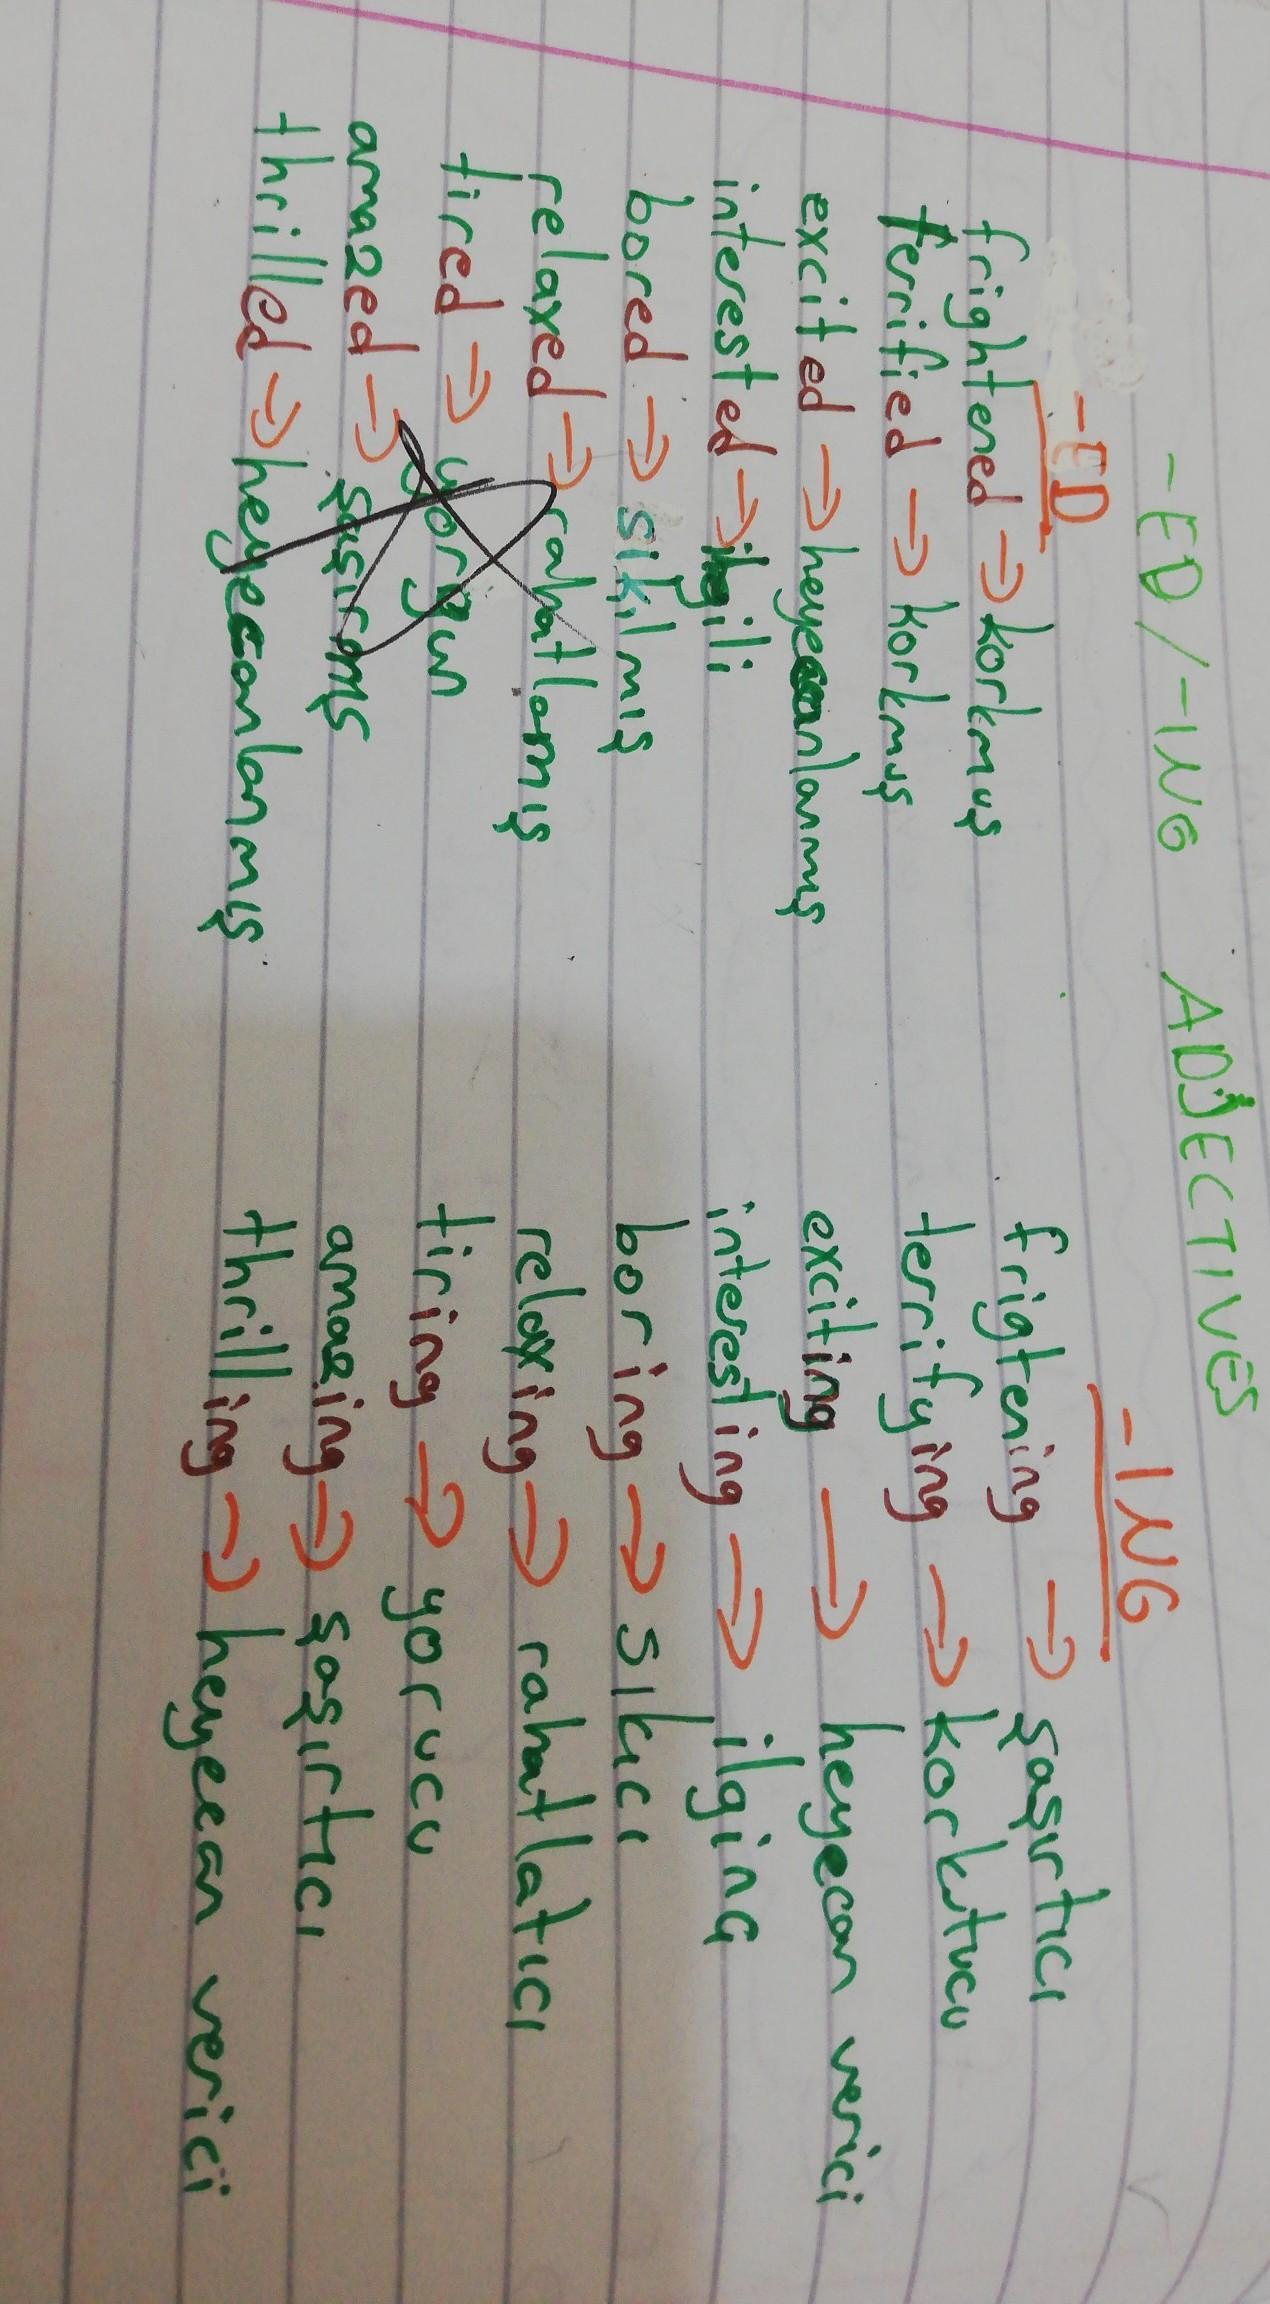 -ED/-ING ADJECTIVES
-ED -ING
frightened → korkmuş frigtening → şaşırtıcı
terrified → korkmuş terrifying → korkutucu
excited → heyecanlanmış exciting → heyecan verici
interested → ilgili interesting → ilginç
bored → sıkılmış boring → sıkıcı
relaxed → rahatlamış relaxing → rahatlatıcı
tired → yorgun tiring → yorucu
amazed → şaşırmış amazing → şaşırtıcı
thrilled → heyecanlanmış thrilling → heyecan verici